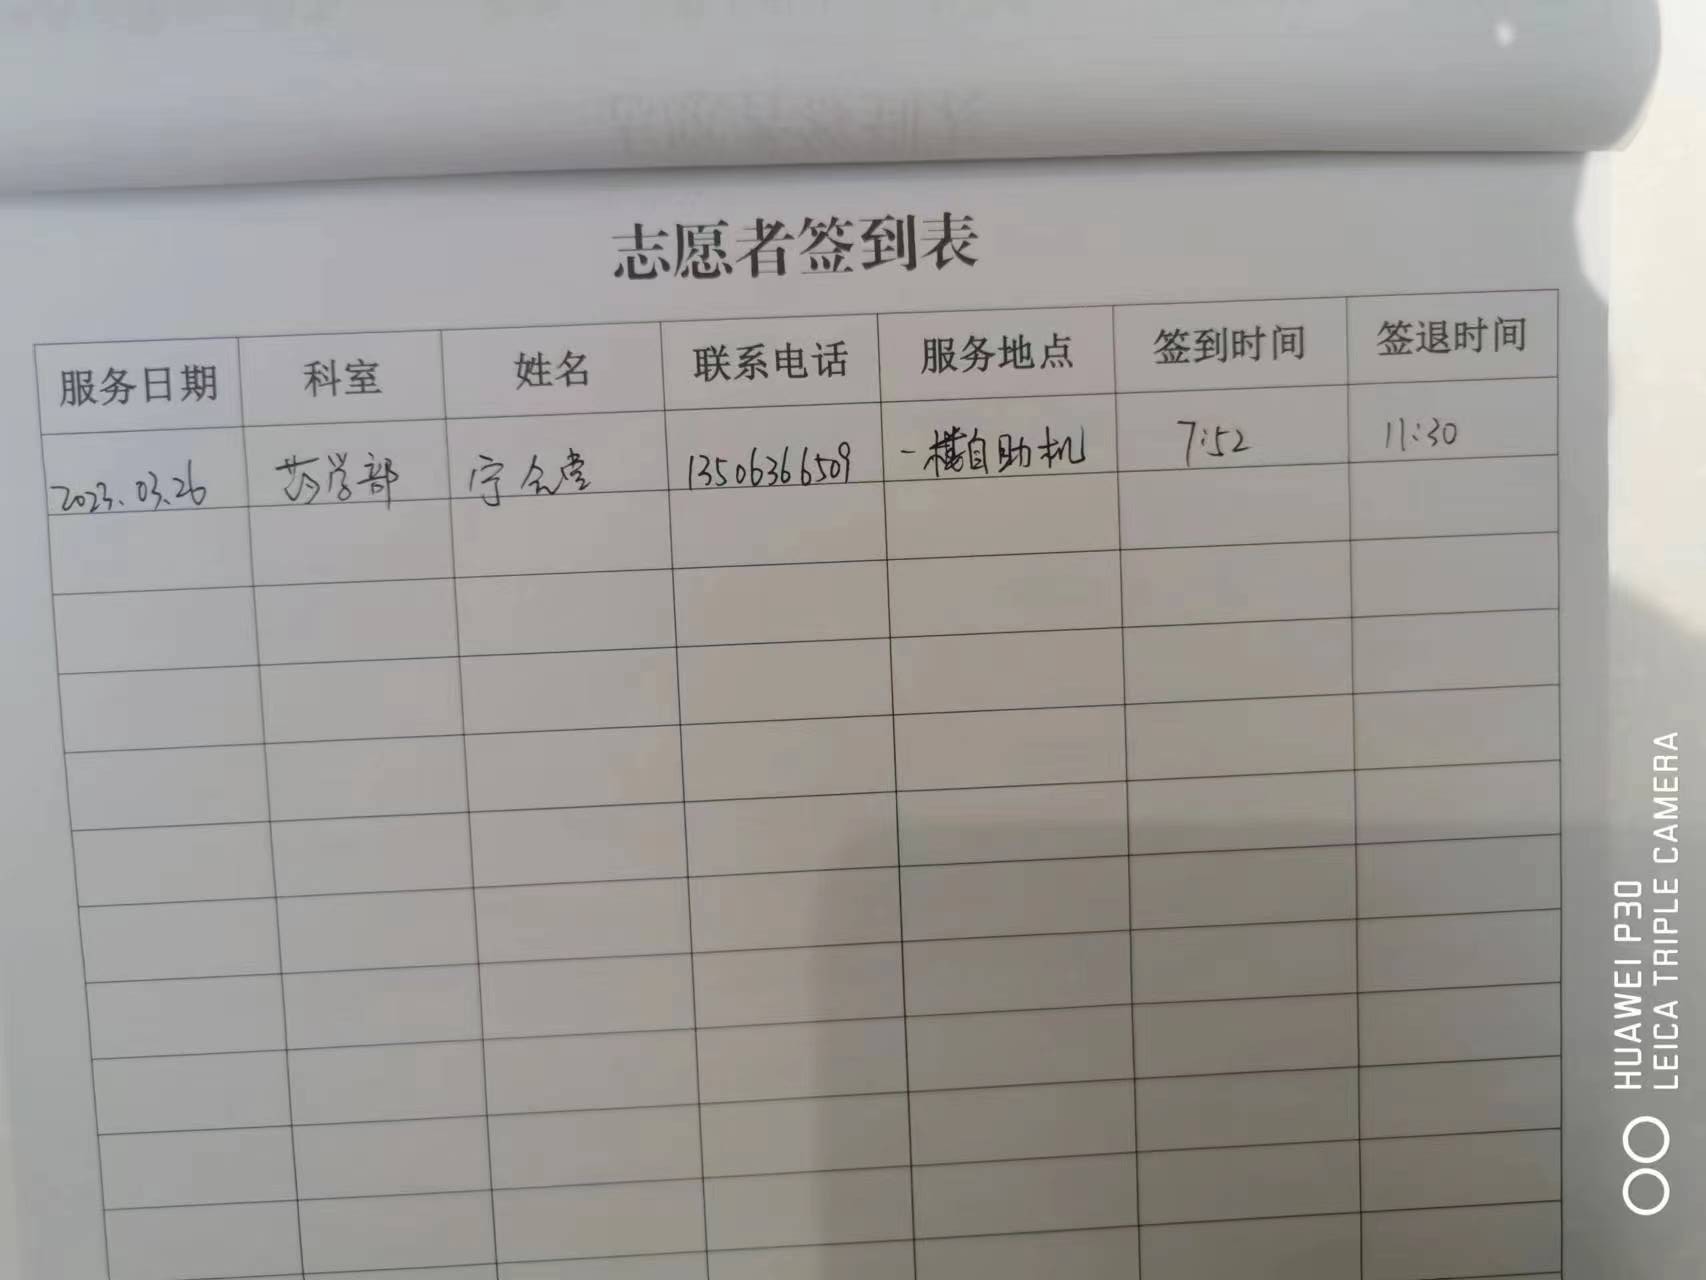 志愿者签到表
服务日期 科室 姓名 联系电话 服务地点 签到时间 签退时间
2023.03.26 药学部 宁会堂 13506366509 一楼自助机 7:52 11:30
HUAWEI P30
LEICA TRIPLE CAMERA